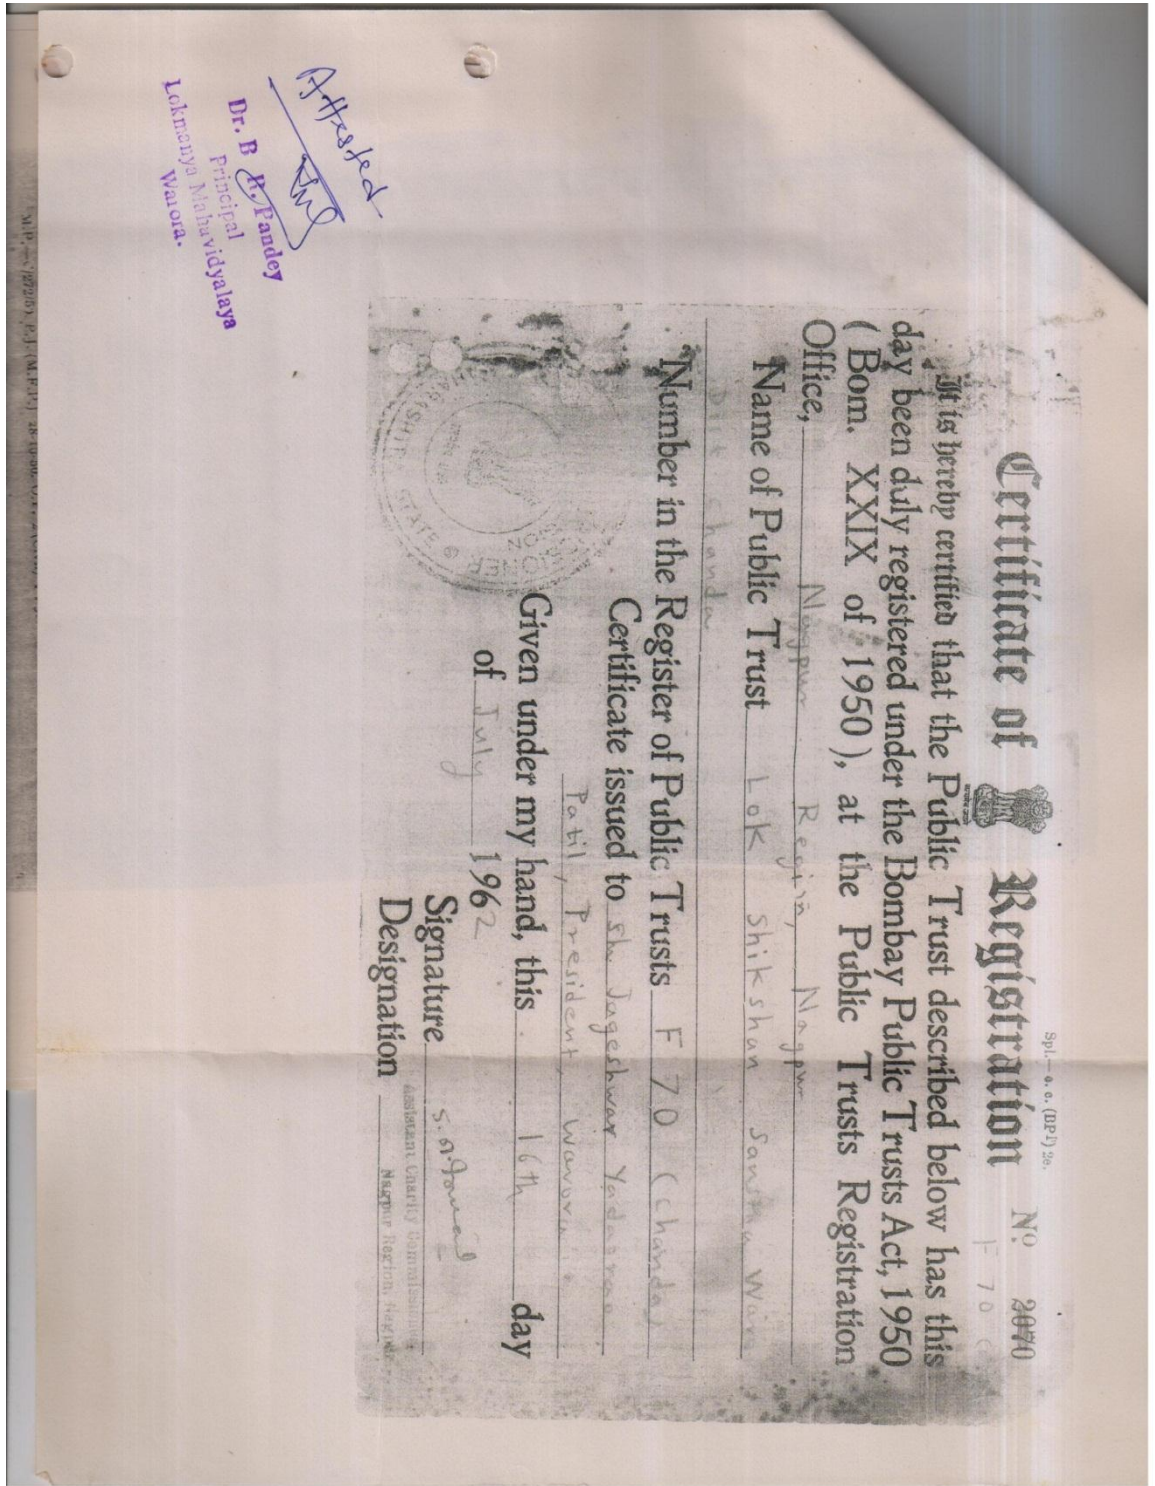 Spl.—o. c. (DPI) 2e.
Certificate of Registration Nº 2070
F 70
It is hereby certified that the Public Trust described below has this
day been duly registered under the Bombay Public Trusts Act, 1950
( Bom. XXIX of 1950 ), at the Public Trusts Registration
Office, Nagpur Region, Nagpur
Name of Public Trust Lok Shikshan Sanstha
Dist Chanda
Number in the Register of Public Trusts F 70 (Chanda)
Certificate issued to Jageshwar
Patil, President,
Given under my hand, this 16th day
of July 1962
Signature
Assistant Charity Commissioner
Designation
Nagpur Region, Nagpur
Attested
Dr. B R. Pandey
Principal
Lokmanya Mahavidyalaya
Warora.